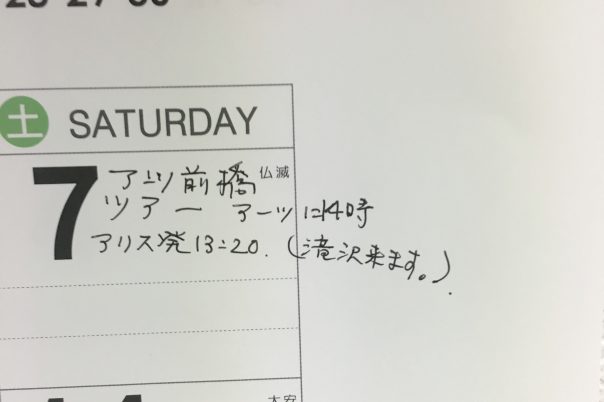 土 SATURDAY
7 アーツ前橋 仏滅
ツアー アーツに14時
アリス発13:20.(滝沢来ます。)
大安